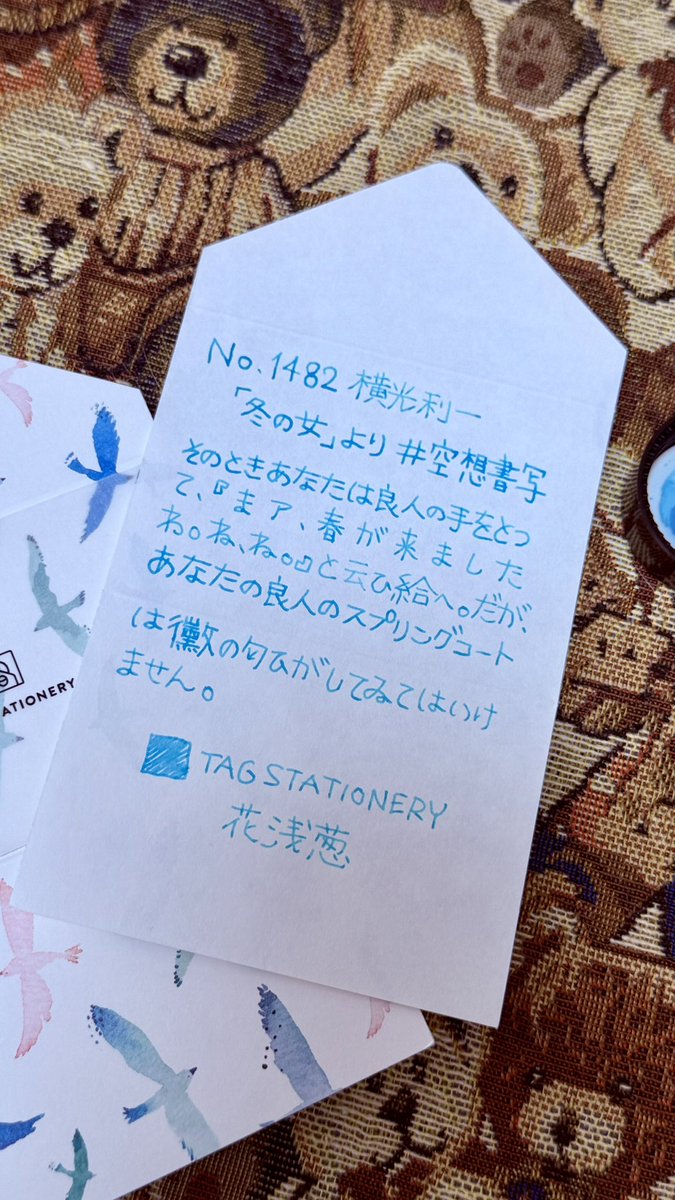 No.1482 横光利一
「冬の女」より #空想書写
そのときあなたは良人の手をとつ
て、『まア、春が来ました
わ。ね、ね。』と云ひ給へ。だが、
あなたの良人のスプリングコート
は黴の匂ひがしてゐてはいけ
ません。
TAG STATIONERY
花浅葱
ATIONERY